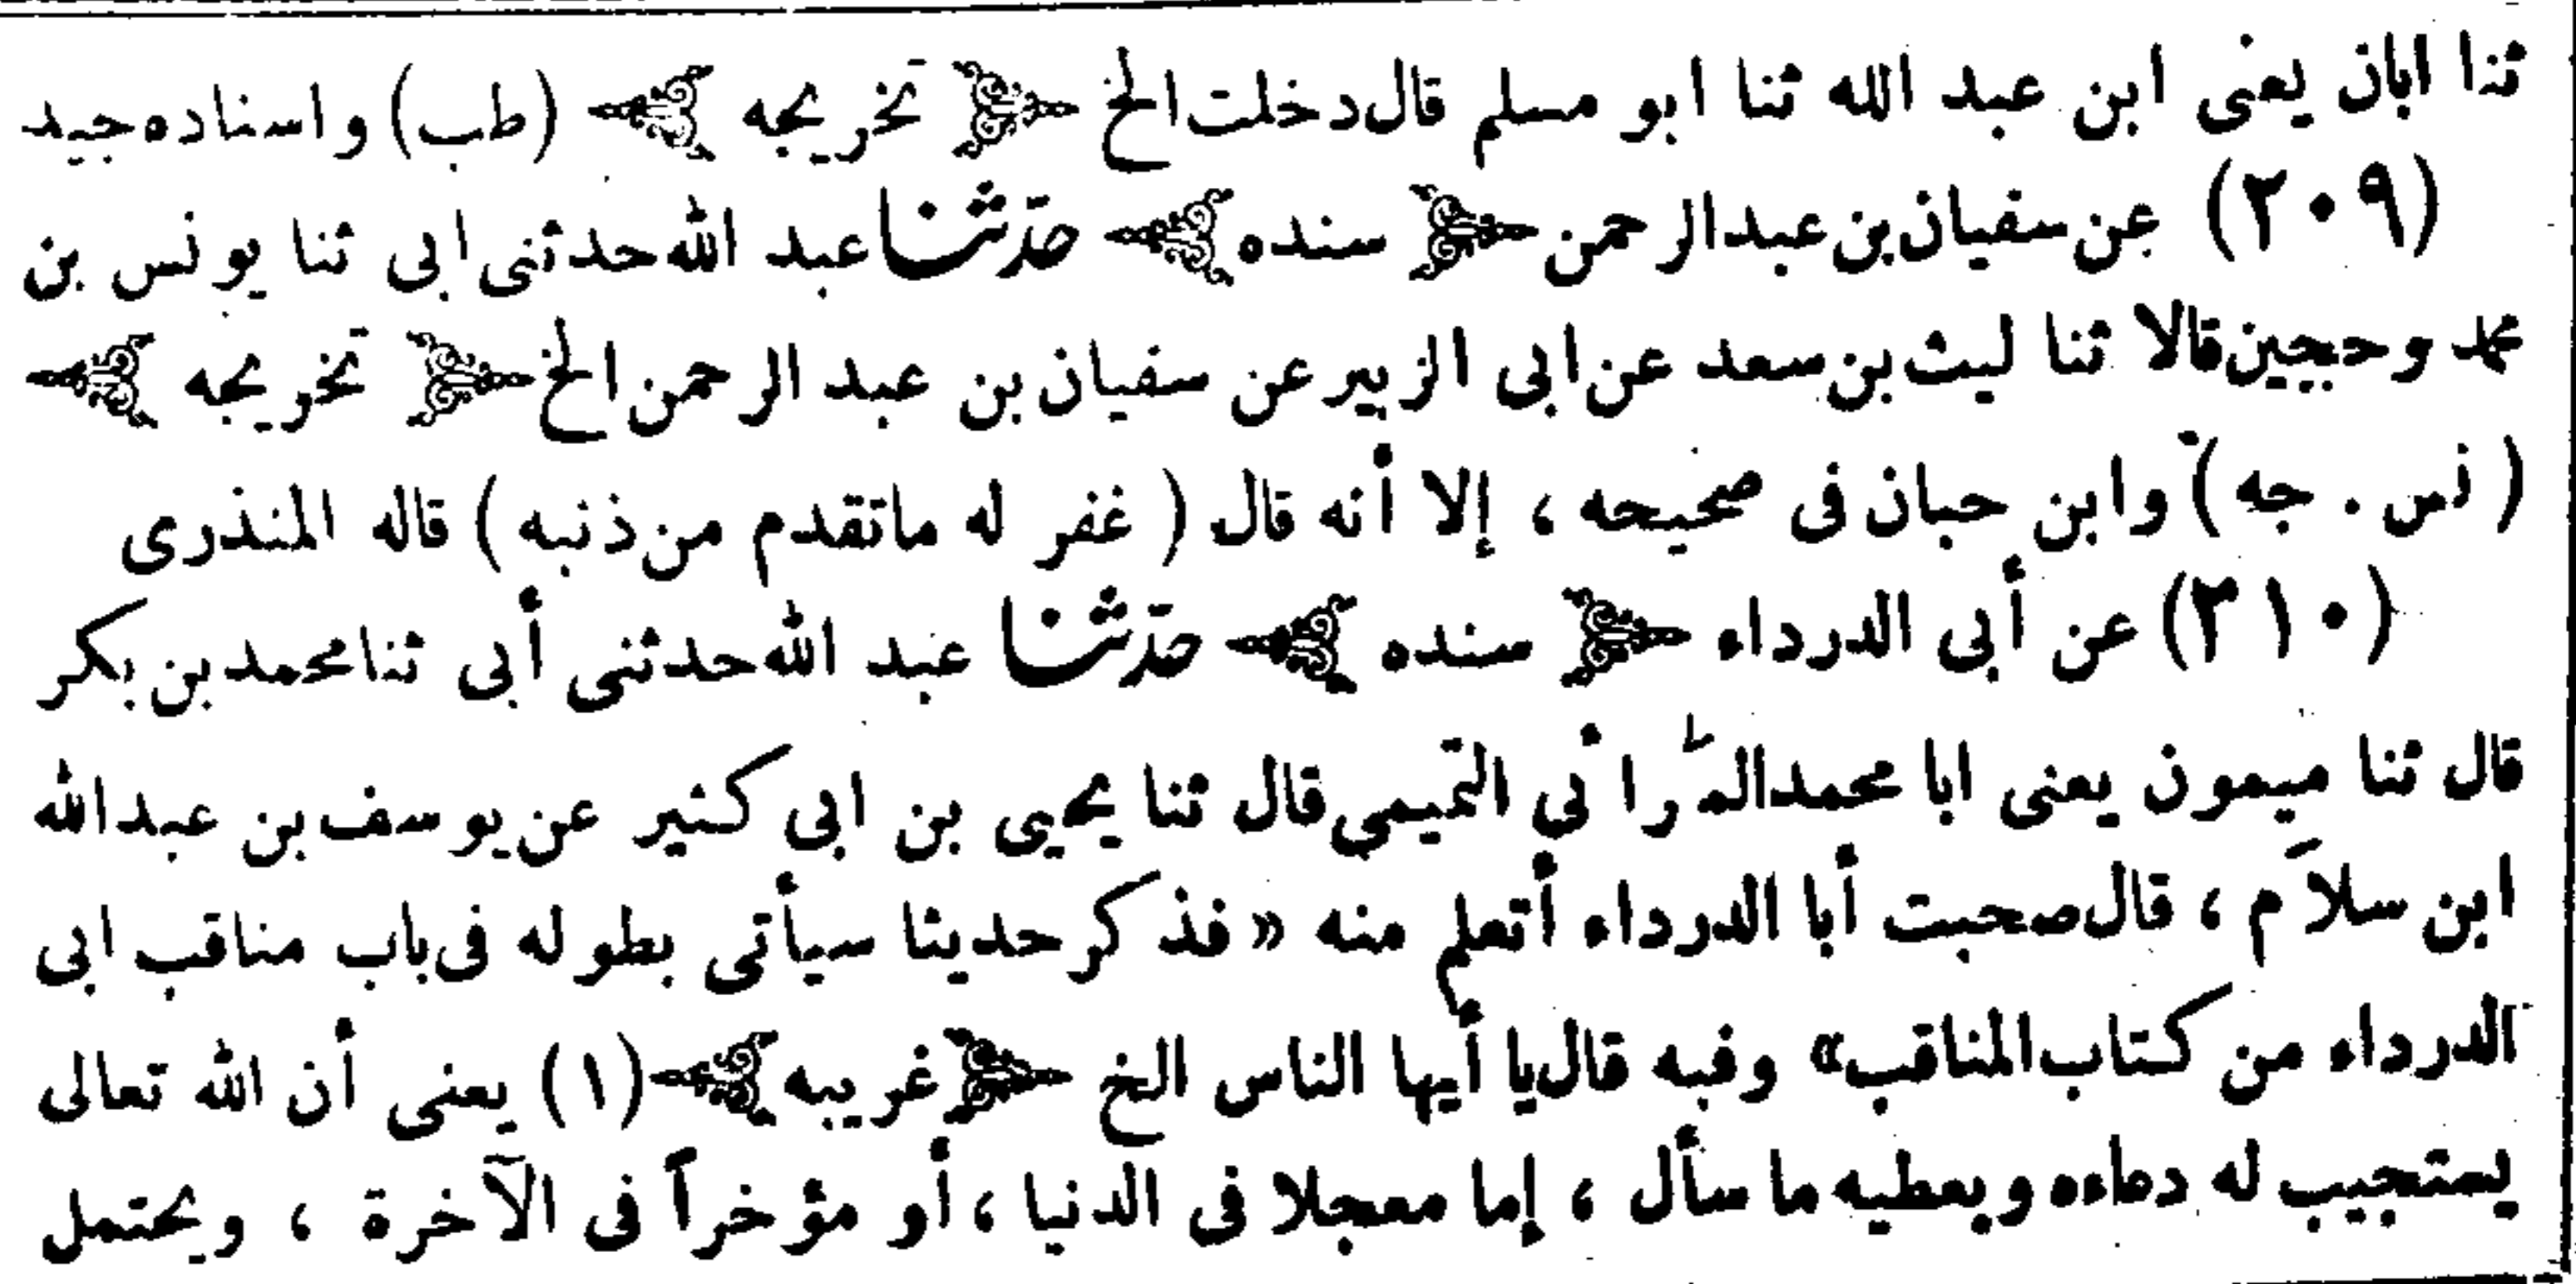 ثنا ابان يعنى ابن عبد الله ثنا ابو مسلم قال دخلت الخ ﴿ تخريجه ﴾ (طب) واسناده جيد
(٢٠٩) عن سفيان بن عبد الرحمن ﴿ سنده ﴾ حدّثنا عبد الله حدثنى ابى ثنا يونس بن
محمد وحجين قالا ثنا ليث بن سعد عن ابى الزبير عن سفيان بن عبد الرحمن الخ ﴿ تخريجه ﴾
( نس . جه ) وابن حبان فى صحيحه ، إلا أنه قال ( غفر له ماتقدم من ذنبه ) قاله المنذرى
(٢١٠) عن أبى الدرداء ﴿ سنده ﴾ حدّثنا عبد الله حدثنى أبى ثنا محمد بن بكر
قال ثنا ميمون يعنى ابا محمد التميمي قال ثنا يحيى بن ابى كثير عن يوسف بن عبد الله
ابن سلاَم ، قال صحبت أبا الدرداء أتعلم منه « فذكر حديثا سيأتى بطوله فى باب مناقب ابى
الدرداء من كتاب المناقب» وفيه قال يا أيها الناس الخ ﴿ غريبه ﴾ (١) يعنى أن الله تعالى
يستجيب له دعاءه ويعطيه ما سأل ، إما معجلا فى الدنيا ، أو مؤخراً فى الآخرة ، ويحتمل